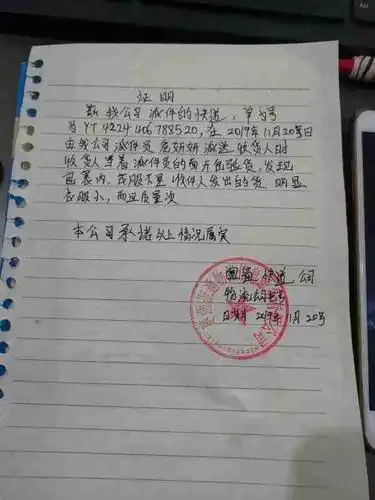 证明
我公司派件的快递，单号
为YT4224406788520，在2019年11月20号日
由我公司派件员 派送收货人时
收货人当着派件员的面开包验货，发现
包裹内，衣服不是收件人发出的货，明显
衣服小，而且质量次
本公司承诺以上情况属实
快递公司
日期 2019年11月20号